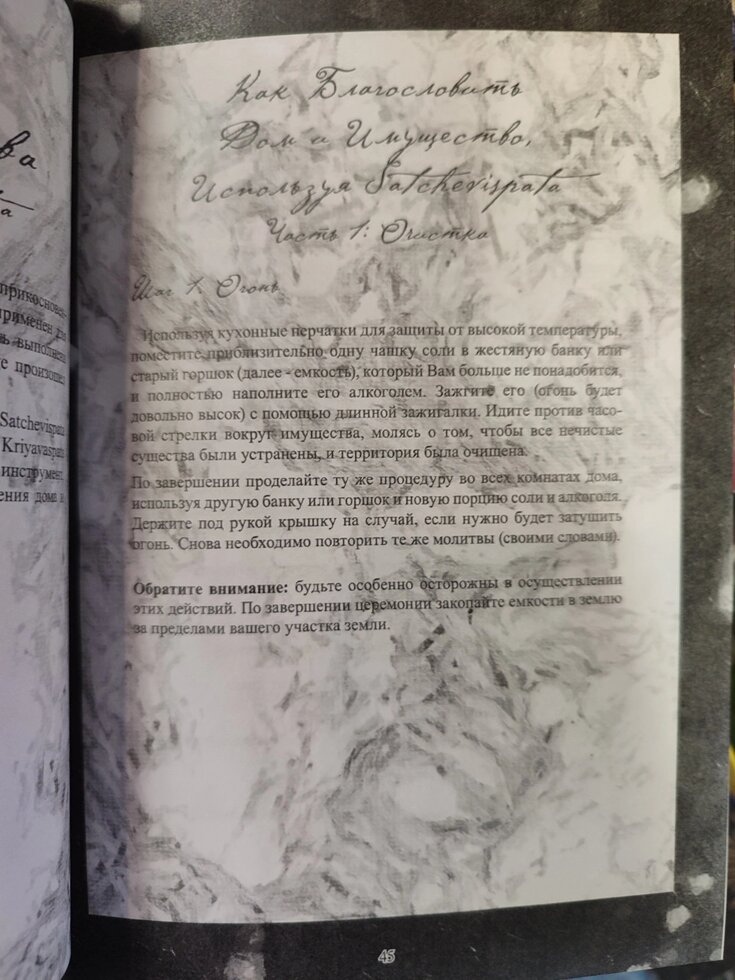 ва
та
прикоснове-
применен для
ь выполнена
е произошел
Satchevispata
Kriyavaspata
инструмент
ения дома и
Как Благословить
Дом и Имущество,
Используя Satchevispata
Часть 1: Очистка
Шаг 1. Огонь
Используя кухонные перчатки для защиты от высокой температуры,
поместите приблизительно одну чашку соли в жестяную банку или
старый горшок (далее - емкость), который Вам больше не понадобится,
и полностью наполните его алкоголем. Зажгите его (огонь будет
довольно высок) с помощью длинной зажигалки. Идите против часо-
вой стрелки вокруг имущества, молясь о том, чтобы все нечистые
существа были устранены, и территория была очищена.
По завершении проделайте ту же процедуру во всех комнатах дома,
используя другую банку или горшок и новую порцию соли и алкоголя.
Держите под рукой крышку на случай, если нужно будет затушить
огонь. Снова необходимо повторить те же молитвы (своими словами).
Обратите внимание: будьте особенно осторожны в осуществлении
этих действий. По завершении церемонии закопайте емкости в землю
за пределами вашего участка земли.
45